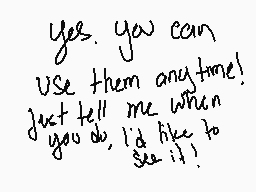 yes. you can
use them anytime!
Just tell me when
you do, I'd like to
see it!